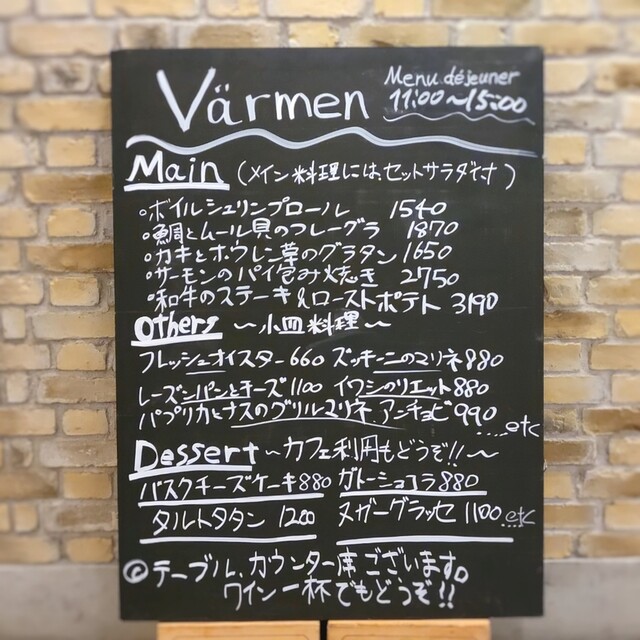 Värmen
Menu déjeuner
11:00～15:00
Main (メイン料理には、セットサラダです)
・ボイルシュリンプロール 1540
・鯛とムール貝のフレーグラ 1870
・カキとホウレン草のグラタン 1650
・サーモンのパイ包み焼き 2750
・和牛のステーキ&ローストポテト 3190
Others ～小皿料理～
フレッシュオイスター 660 ズッキーニのマリネ 880
レーズンパンとチーズ 1100 イワシのリエット 880
パプリカとナスのグリルマリネ、アンチョビ 990 ....etc
Dessert ～カフェ利用もどうぞ!!～
バスクチーズケーキ 880 ガトーショコラ 880
タルトタタン 1200 ヌガーグラッセ 1100 ...etc
◎テーブル、カウンター席ございます。
ワイン一杯でもどうぞ!!